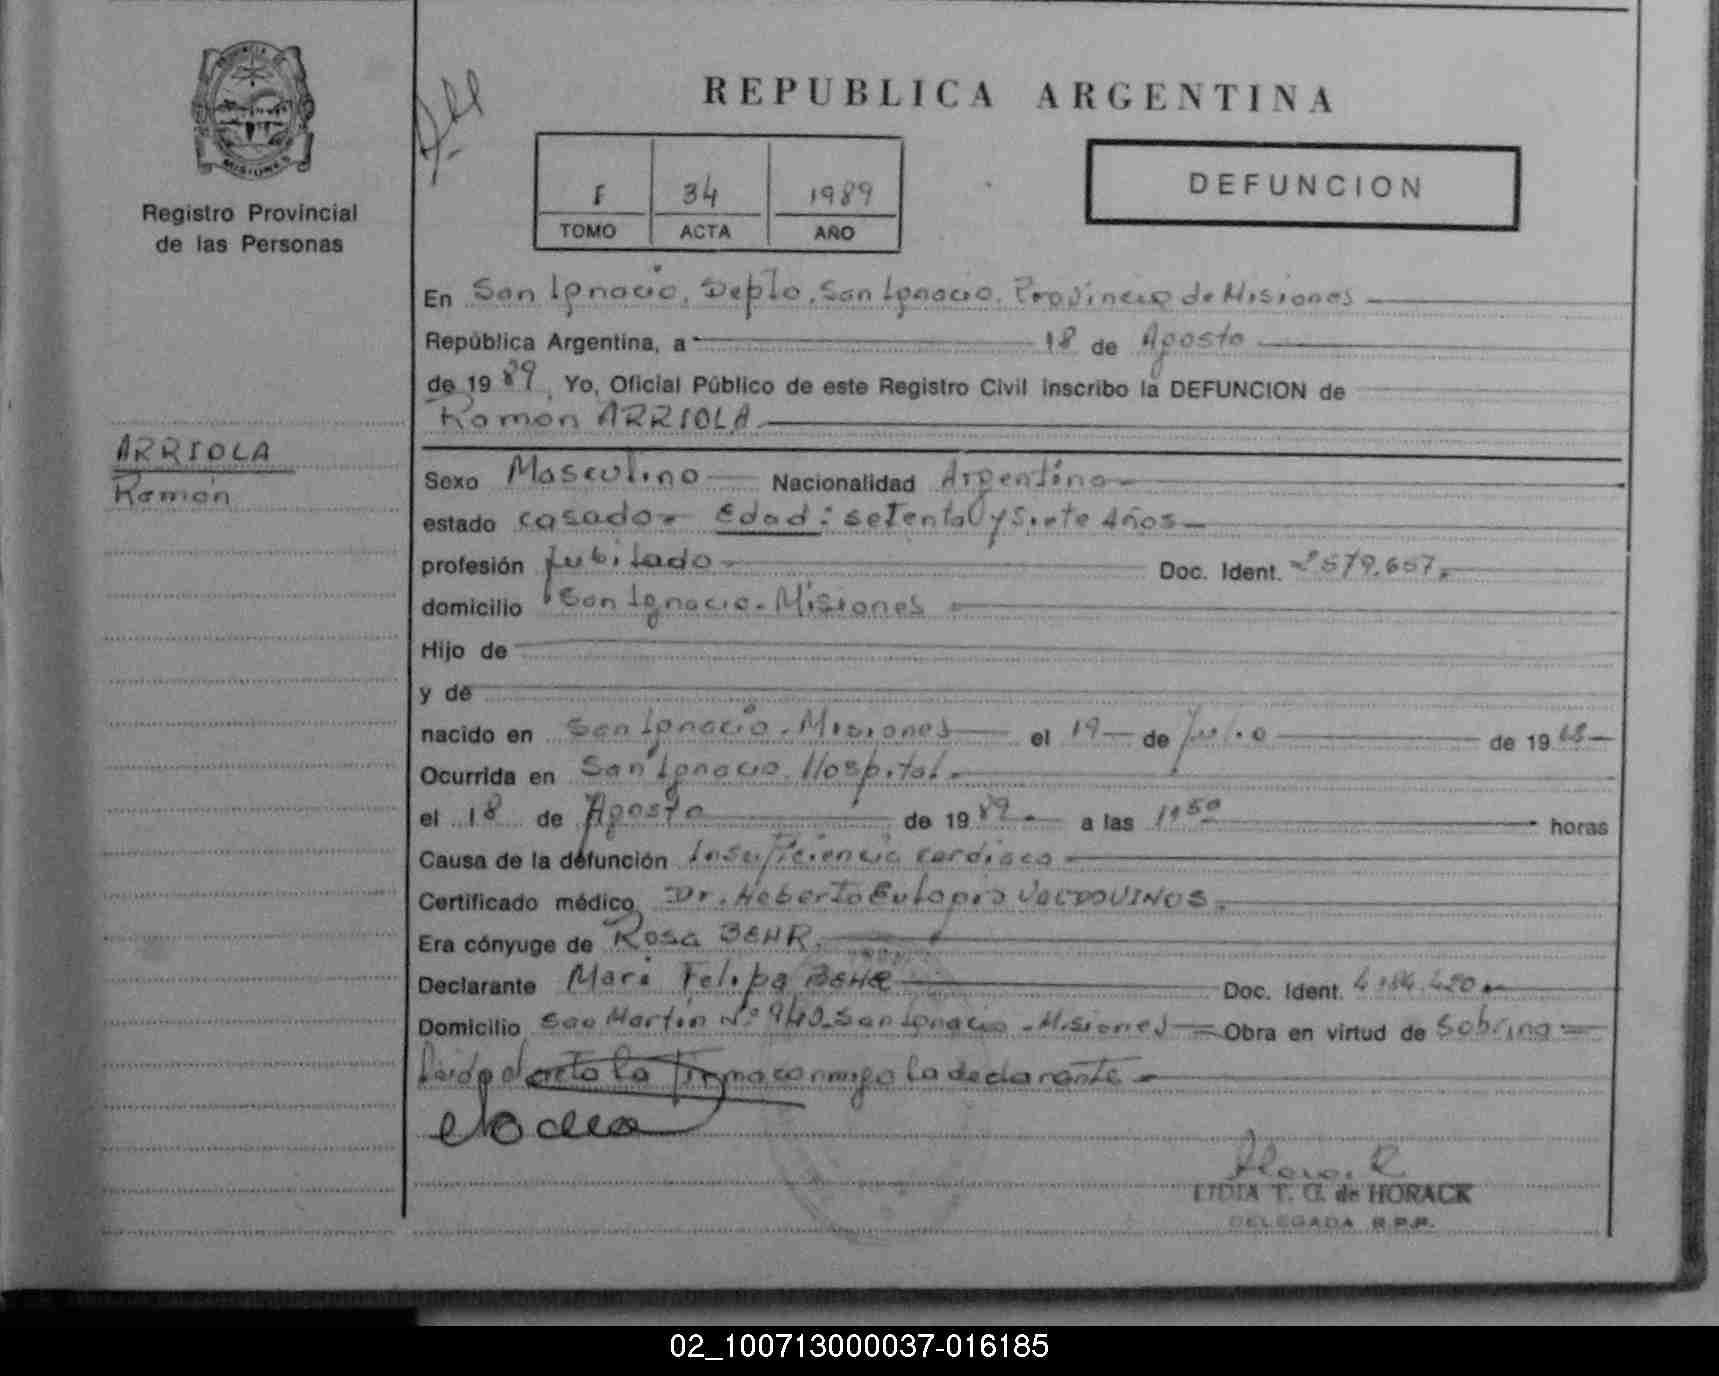 PROVINCIA DE
MISIONES
Registro Provincial
de las Personas
ARRIOLA
Ramón
REPUBLICA ARGENTINA
I 34 1989
TOMO ACTA AÑO
DEFUNCION
En San Ignacio, Depto. San Ignacio. Provincia de Misiones
República Argentina, a 18 de Agosto
de 1989, Yo, Oficial Público de este Registro Civil inscribo la DEFUNCION de
Ramón ARRIOLA
Sexo Masculino Nacionalidad Argentina
estado casado- Edad: setenta y Siete Años
profesión Jubilado Doc. Ident. 2579.657.
domicilio San Ignacio - Misiones
Hijo de
y de
nacido en San Ignacio - Misiones el 19 de Julio de 19
Ocurrida en San Ignacio. Hospital.
el 18 de Agosto de 1989 a las horas
Causa de la defunción Insuficiencia cardiaca
Certificado médico Dr. Heberto Eulogio VALDOVINOS.
Era cónyuge de Rosa BEHR.
Declarante Mari Felipa BEHR Doc. Ident.
Domicilio San Martín Nº 940 - San Ignacio - Misiones Obra en virtud de Sobrina
Leida el acta la firma conmigo la declarante
LIDIA T. G. de HORACK
DELEGADA R.P.P.
02_100713000037-016185